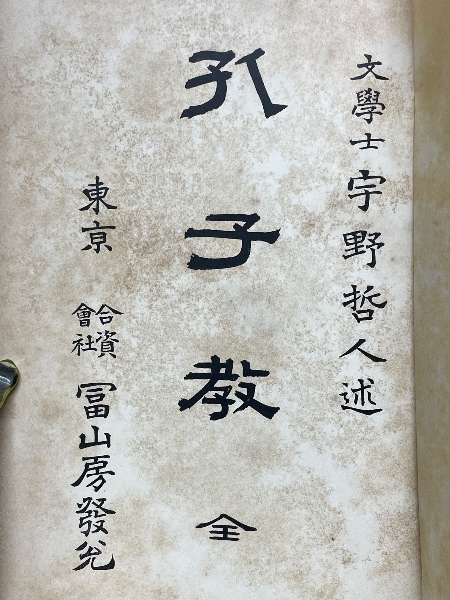 文學士宇野哲人述
孔子教全
東京合資會社冨山房發兌